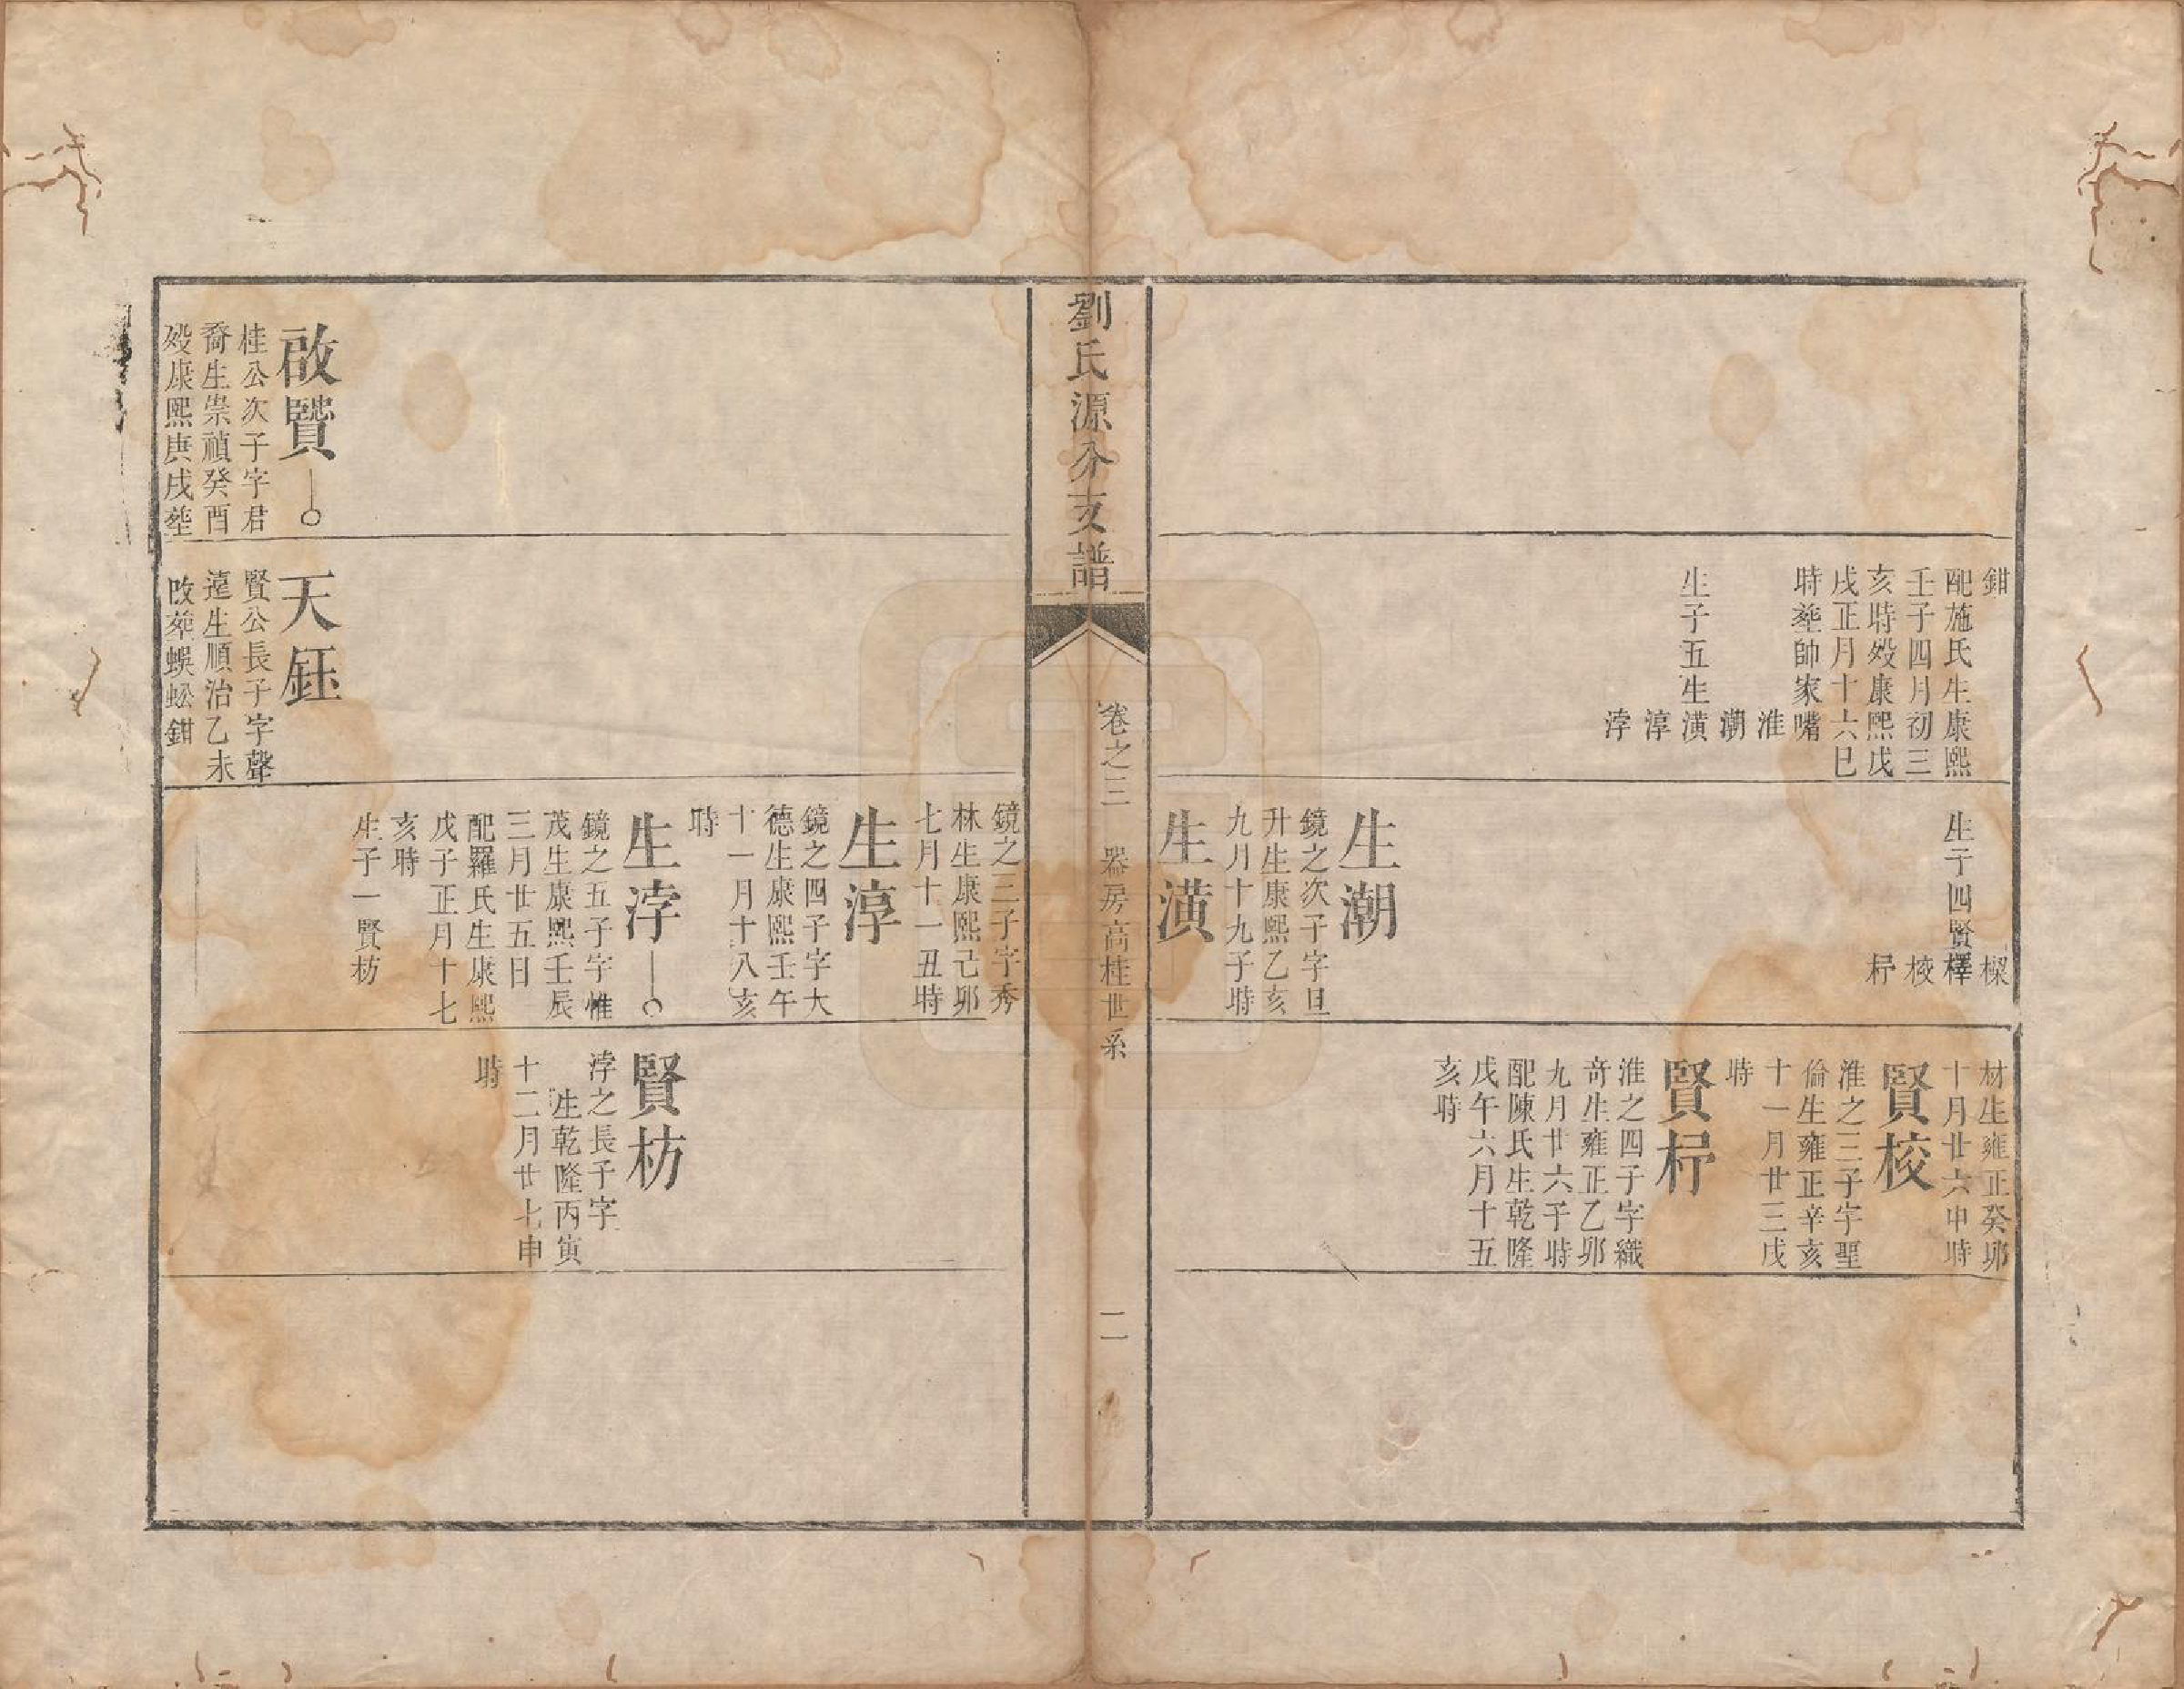 鉗
配施氏生康熙
壬子四月初三
亥時歿康熙戊
戌正月十六巳
時塟帥家嘴
淮
潮
生子五生潢
淳
浡
樑
生子四賢樺
校
杍
生潮
鏡之次子字旦
升生康熙乙亥
九月十九子時
生潢
材生雍正癸卯
十月廿六申時
賢校
淮之三子字聖
倫生雍正辛亥
十一月廿三戌
時
賢杍
淮之四子字織
奇生雍正乙卯
九月廿六子時
配陳氏生乾隆
戊午六月十五
亥時
劉氏源分支譜
卷之三
器房高桂世系
二
啟賢
桂公次子字君
裔生崇禎癸酉
歿康熙庚戌塟
天鈺
賢公長子字聲
遠生順治乙未
改塟蜈蚣鉗
鏡之三子字秀
林生康熙己卯
七月十一丑時
生淳
鏡之四子字大
德生康熙壬午
十一月十八亥
時
生浡
鏡之五子字惟
茂生康熙壬辰
三月廿五日
配羅氏生康熙
戊子正月十七
亥時
生子一賢枋
賢枋
浡之長子字
生乾隆丙寅
十二月廿七申
時